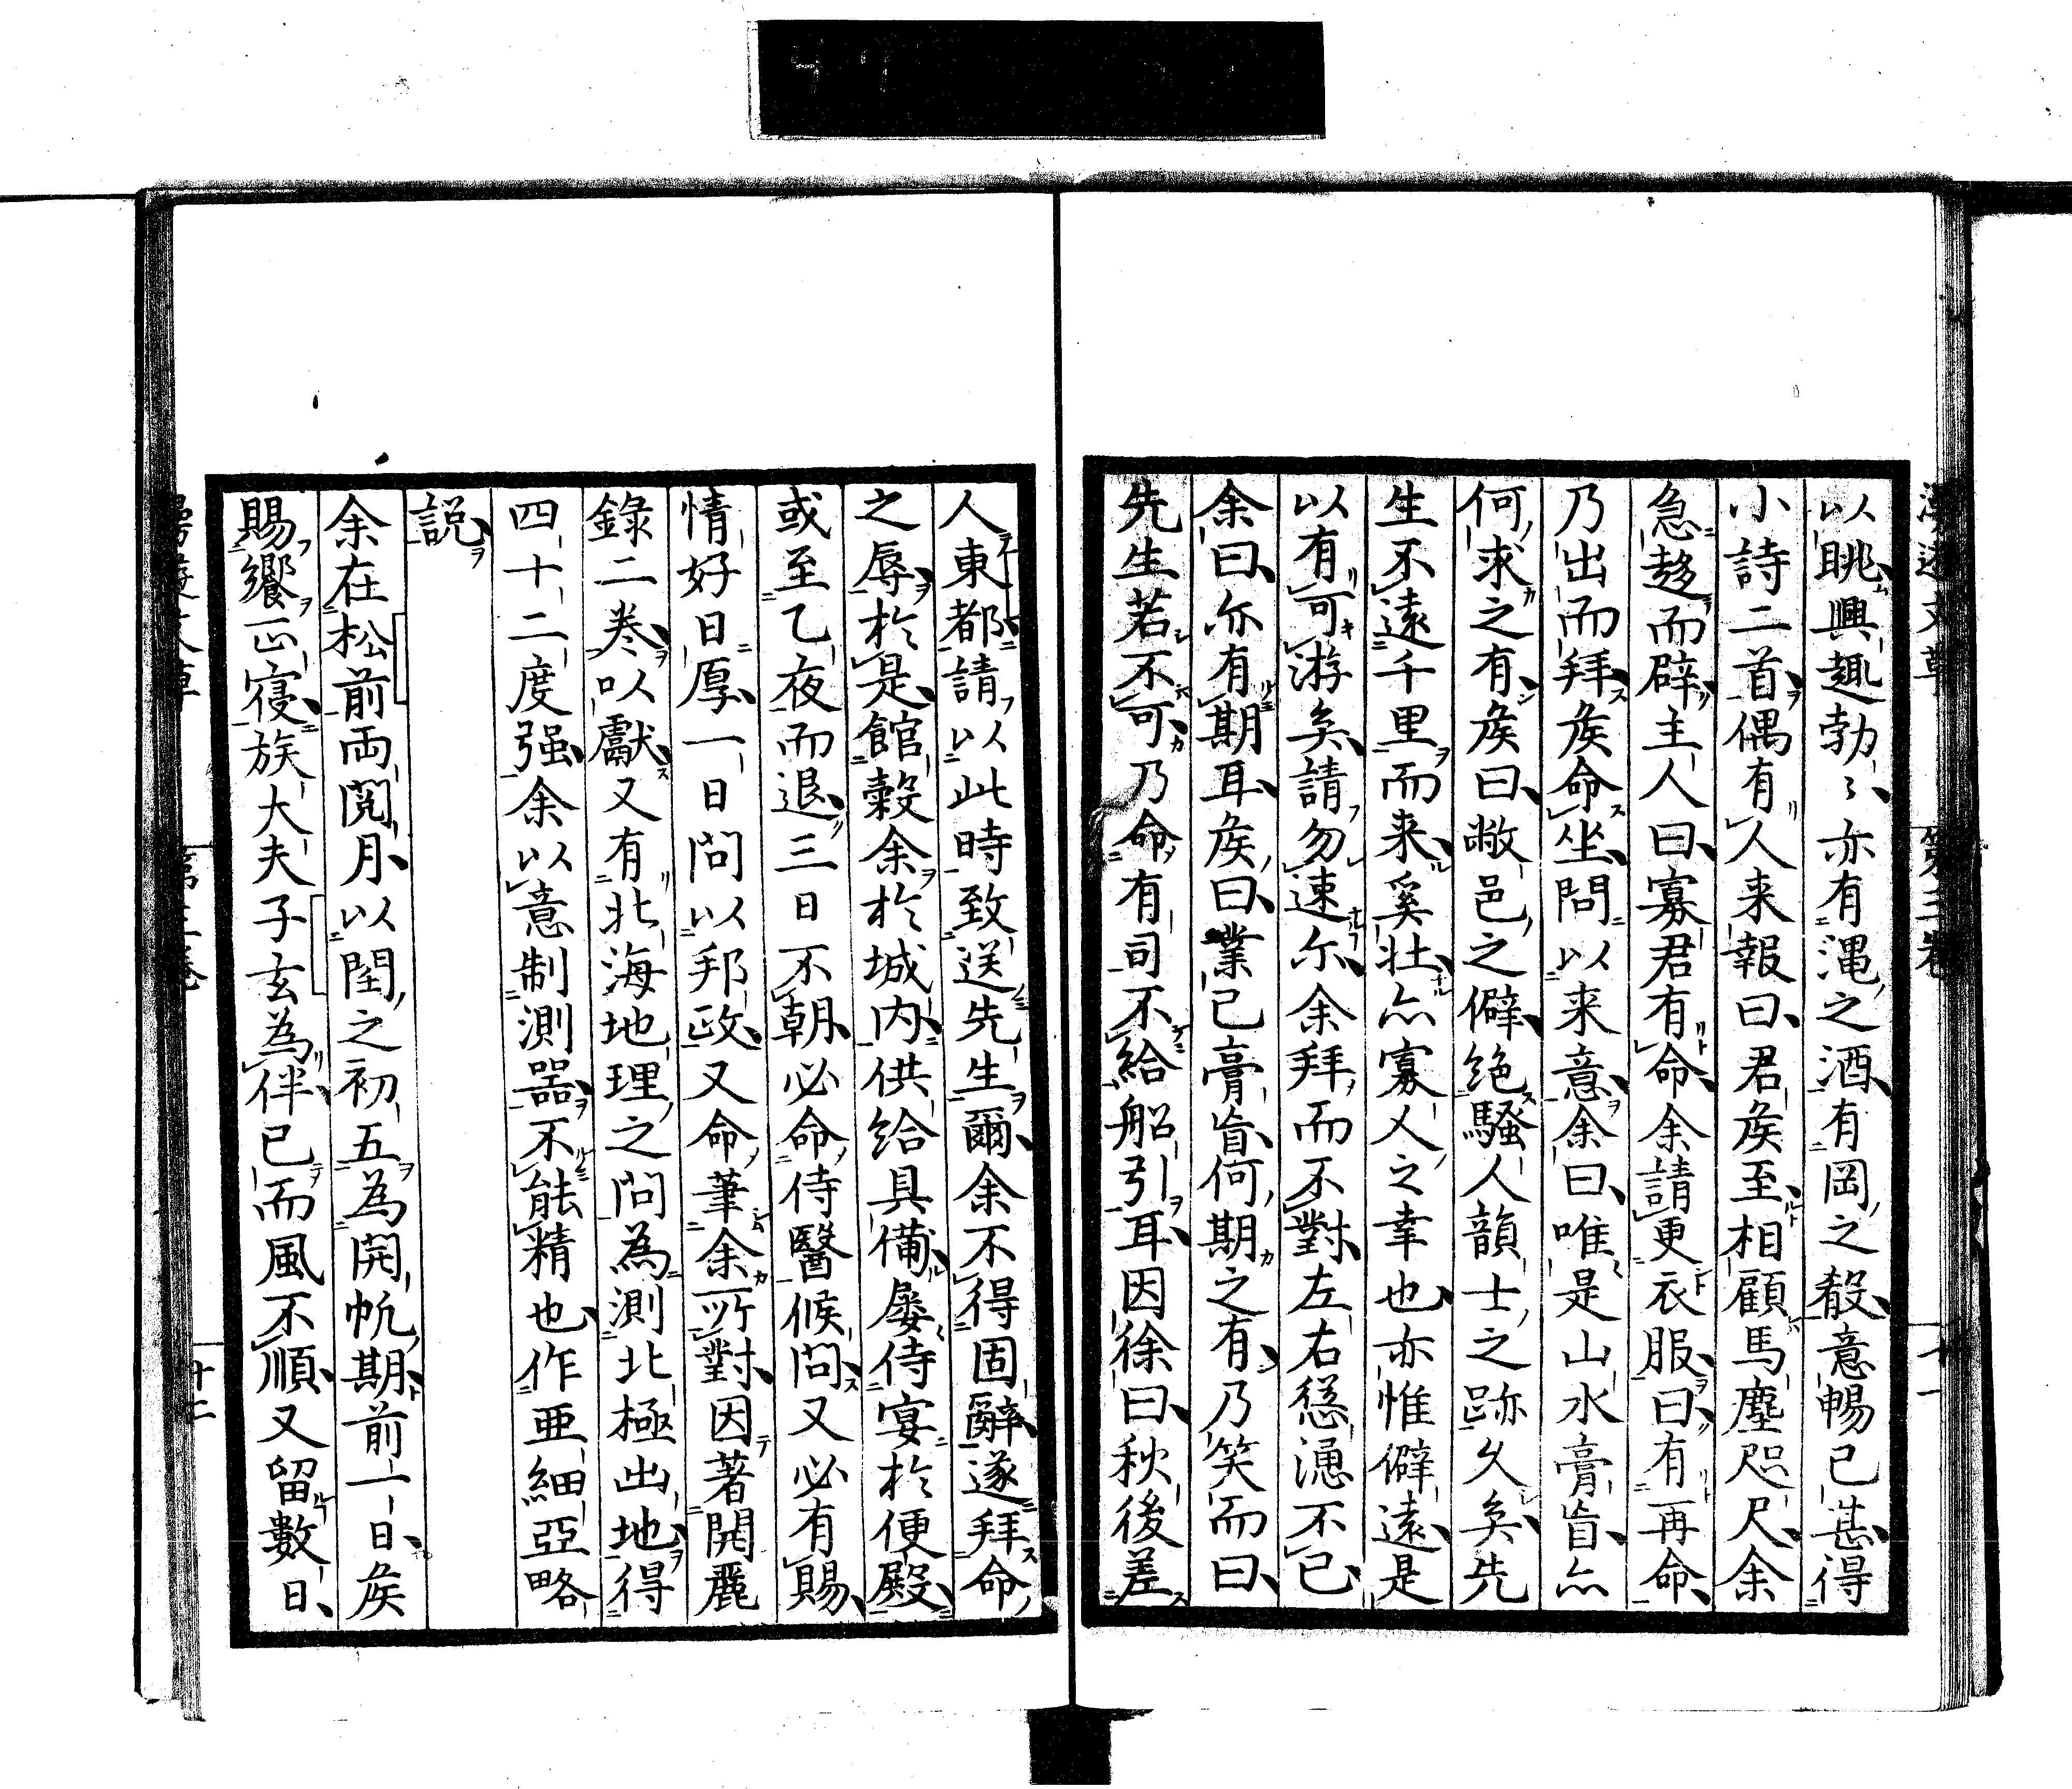 以眺興趣勃〻亦有澠之酒有岡之殽意暢已甚得
小詩二首偶有人来報曰君矦至相顧馬塵咫尺余
急趍而辟主人曰寡君有命余請更衣服曰有再命
乃出而拜矦命坐問以来意余曰唯〻是山水膏肓亦
何求之有矦曰敝邑之僻絶騷人韻士之跡久矣先
生不遠千里而来奚壮亦寡人之幸也亦惟僻遠是
以有可游矣請勿速尓余拜而不對左右慫慂不已
余曰亦有期耳矦曰業已膏肓何期之有乃笑而曰
先生若不可乃命有司不給船引耳因徐曰秋後差
人東都請以此時致送先生爾余不得固辭遂拜命
之辱於是館穀余於城内供給具備屡侍宴於便殿
或至乙夜而退三日不朝必命侍醫候問又必有賜
情好日厚一日問以邦政又命筆余所對因著開麗
錄二巻以獻又有北海地理之問為測北極出地得
四十二度强余以意制測器不能精也作亜細亞略
説
余在松前両閲月以閏之初五為開帆期前一日矦
賜饗正寝族大夫子玄為伴已而風不順又留數日